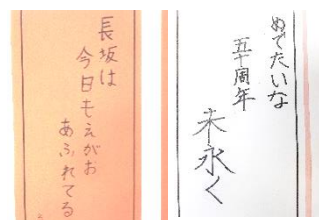 長坂は
今日もえがお
あふれてる
めでたいな
五十周年
末永く